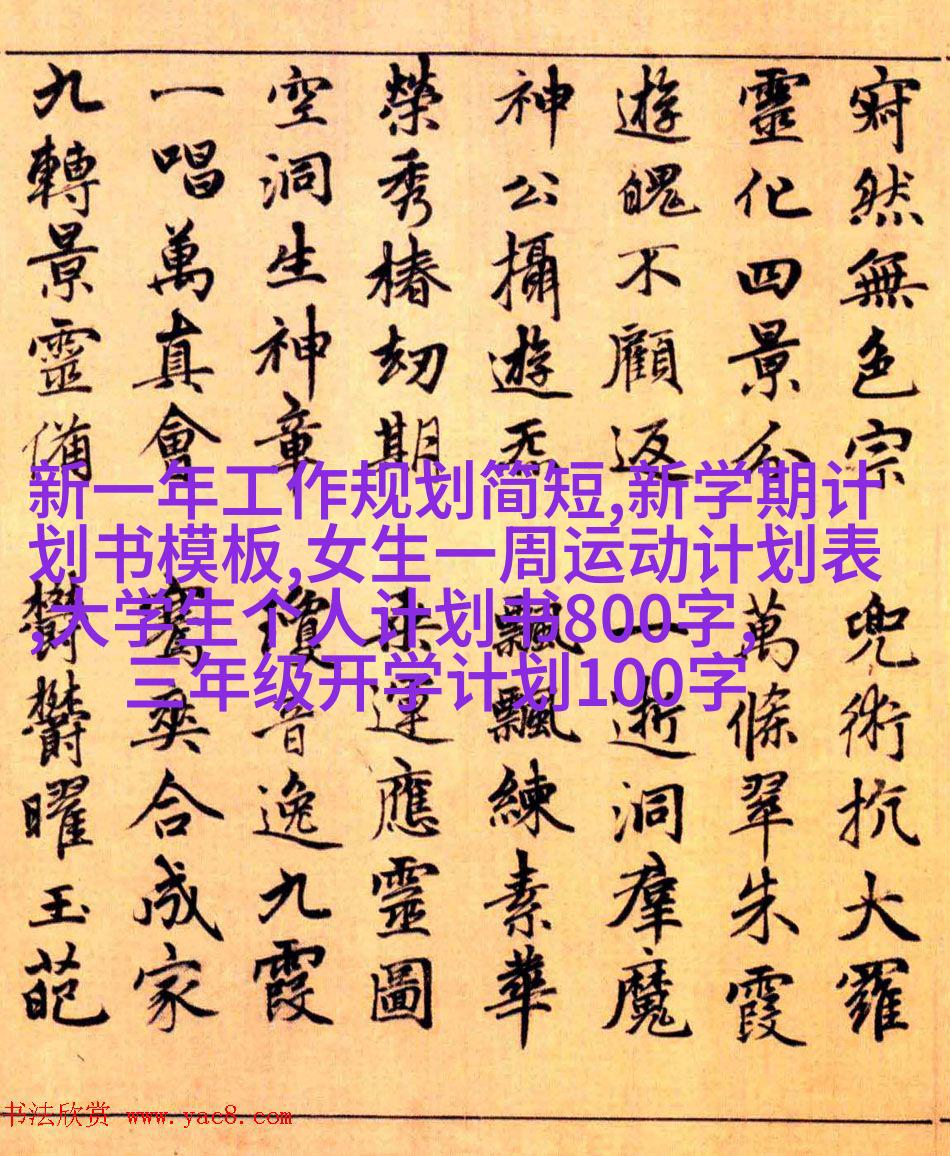 寂然無色宗 兜術抗大羅
靈化四景分 萬條翠朱霞
遊魄不顧返 一逝洞羣魔
神公攝遊炁 飄飄練素華
榮秀椿劫期 乘運應靈圖
空洞生神童 瓊音逸九霞
一唱萬真會 騫爽合成家
九轉景靈備 鬱鬱曜玉葩
新一年工作规划简短,新学期计
划书模板,女生一周运动计划表
,大学生个人计划书800字,
三年级开学计划100字
书法欣赏 www.yac8.com